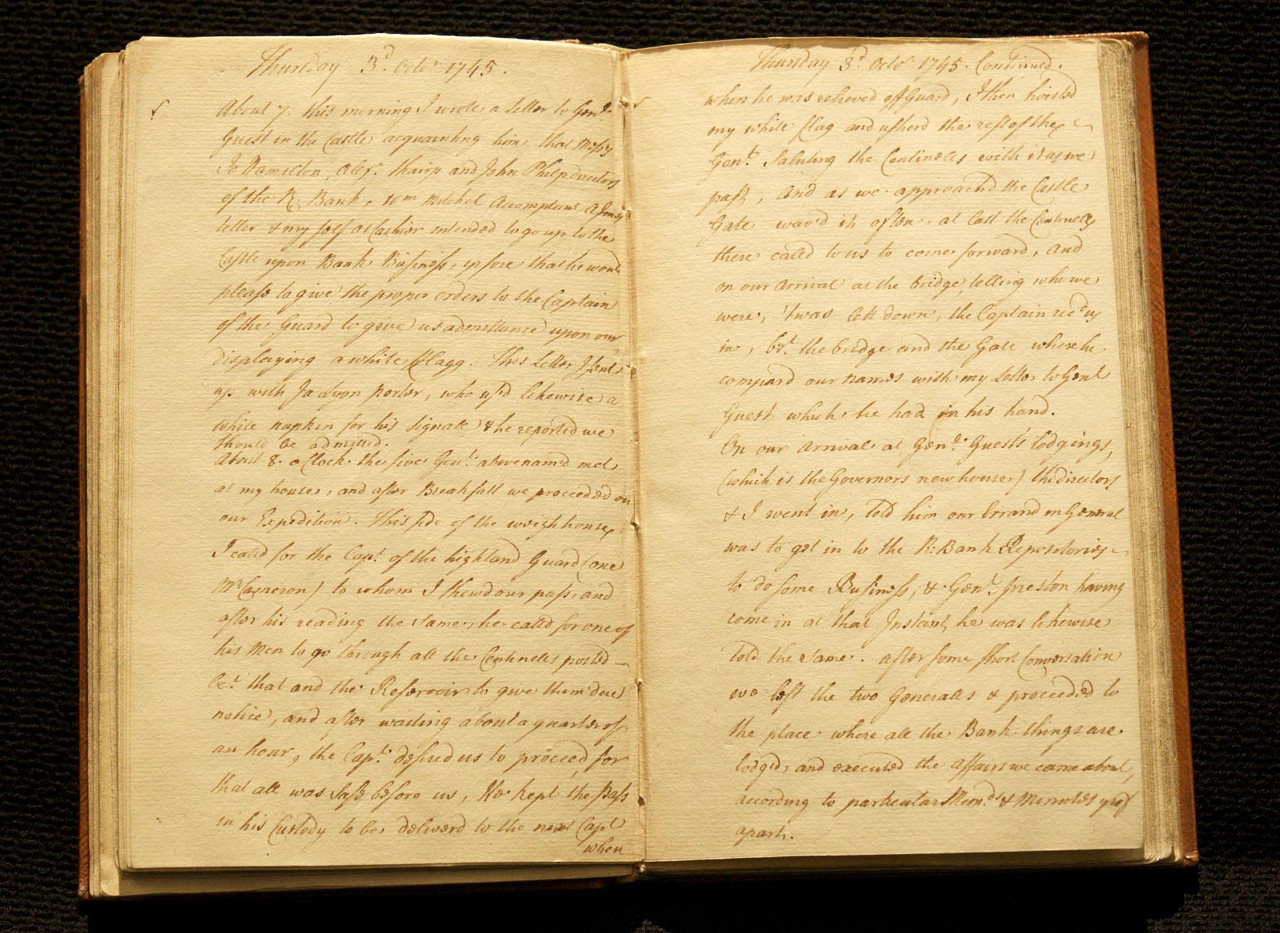 Thursday 3d. Octor. 1745.
About 7 this morning I wrote a letter to Genl.
Guest in the Castle acquainting him, that Messrs
Jo Hamilton, Alexr. Shairp and John Philp directors
of the R. Bank, Wm Mitchel Accomptant
letter & my self as Cashier intended to go up to the
Castle upon Bank Business, & hope that he would
please to give the proper orders to the Captain
of the Guard to give us admittance upon our
displaying a white flagg. This letter I sent
up with Ja Lyon porter, who us'd likewise a
white napkin for his signall & he reported we
should be admitted.
About 8 o Clock the five Gent. abovenamd met
at my house, and after Breakfast we proceeded on
our Expedition. This side of the weighhouse
I calld for the Capt. of the highland Guard (one
Mr Cameron) to whom I shewd our pass, and
after his reading the same, he calld for one of
his Men to go through all the Centinells posted
bet. that and the Reservoir to give them due
notice, and after waiting about a quarter of
an hour, the Capt. desired us to proceed for
that all was safe before us, He kept the Pass
in his Custody to be deliverd to the next Capt
when
Thursday 3d Octor 1745. Continued.
when he was relieved off Guard, I then hoisted
my white flag and usherd the rest of the
Gent. Saluting the Centinells with it as we
past, and as we approachd the Castle
Gate wav'd it often, at last the Centinells
there calld to us to come forward, and
on our arrival at the bridge, telling who we
were, 'twas lett down, the Captain recd us
in, bet. the bridge and the Gate where he
compard our names with my letter to Genl
Guest which he had in his hand.
On our arrival at Genl. Guests lodgings,
(which is the Governors new house) the directors
& I went in, told him our Errand in General
was to get in to the R: Bank Repositories
to do some Business, & Genl. Preston having
come in at that Instant, he was likewise
told the same. After some short Conversation
we left the two Generalls & proceeded to
the place where all the Bank things are
lodgd, and executed the affairs we came about,
according to particular Memds & Minutes yrof
apart.